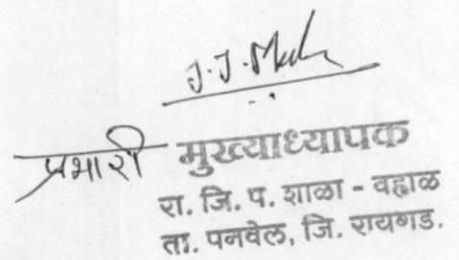 प्रभारी मुख्याध्यापक
रा. जि. प. शाळा - वहाळ
ता. पनवेल, जि. रायगड.